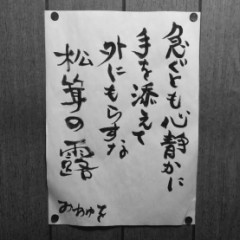 急ぐとも心静かに
手を添えて
外にもらすな
松茸の露